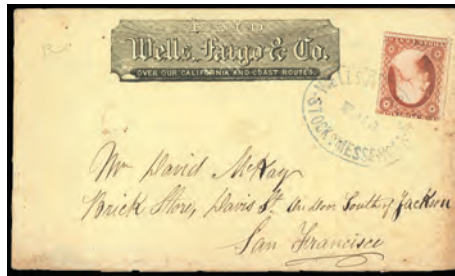 PAID
Wells, Fargo & Co.
OVER OUR CALIFORNIA AND COAST ROUTES.
WELLS
STOCKTON MESSENGER
Mr David McKay
Brick Store, Davis St. 2nd door South of Jackson
San Francisco